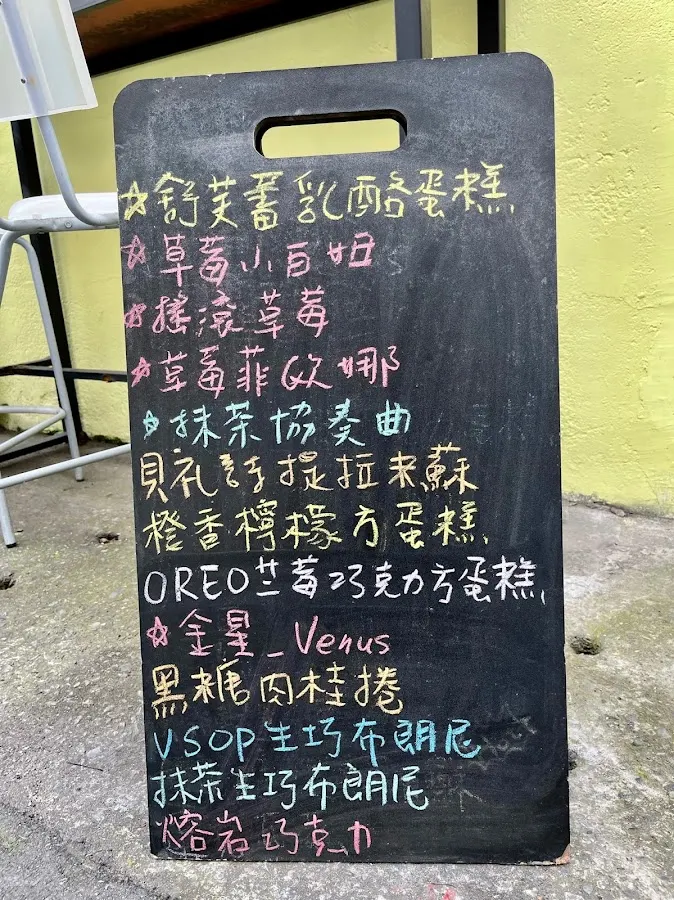 ☆舒芙蕾乳酪蛋糕
☆草莓小百姆
☆搖滾草莓
☆草莓菲欧娜
☆抹茶協奏曲
貝礼詩提拉米蘇
橙香檸檬方蛋糕
OREO苎莓巧克力方蛋糕
☆金星_Venus
黑糖肉桂捲
VSOP生巧布朗尼
抹茶生巧布朗尼
熔岩巧克力